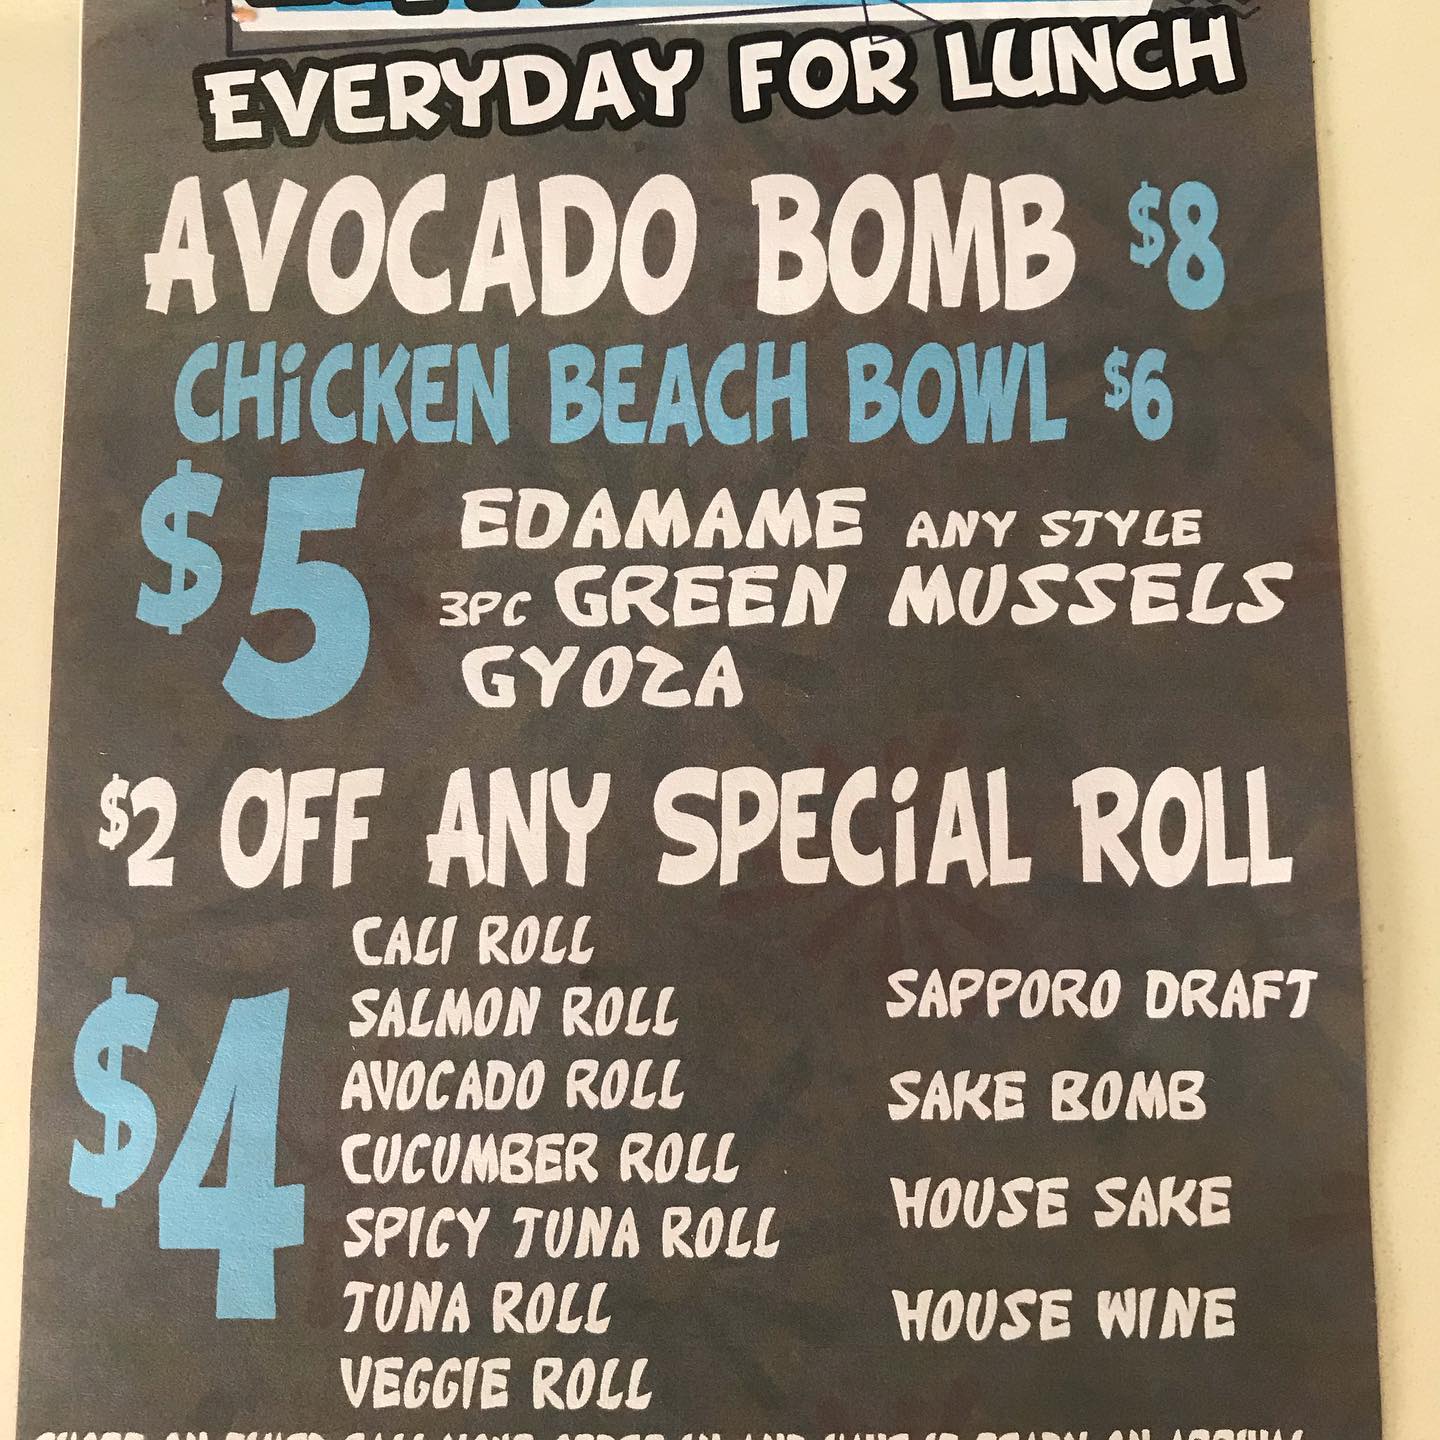 EVERYDAY FOR LUNCH
AVOCADO BOMB $8
CHiCKEN BEACH BOWL $6
$5
EDAMAME ANY STYLE
3PC GREEN MUSSELS
GYOZA
$2 OFF ANY SPECiAL ROLL
$4
CALI ROLL
SALMON ROLL
AVOCADO ROLL
CUCUMBER ROLL
SPICY TUNA ROLL
TUNA ROLL
VEGGIE ROLL
SAPPORO DRAFT
SAKE BOMB
HOUSE SAKE
HOUSE WINE